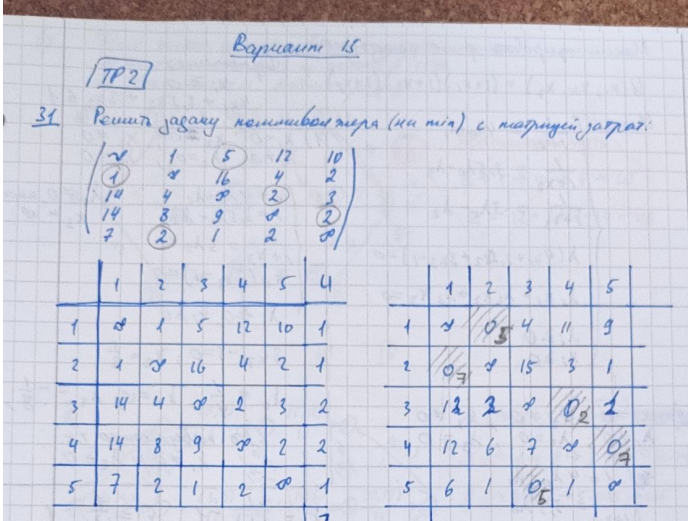 Вариант 15
ТР2
31 Решить задачу коммивояжера (на min) с матрицей затрат:
∞ 1 5 12 10
1 ∞ 16 4 2
14 4 ∞ 2 3
14 8 9 ∞ 2
7 2 1 2 ∞
1 2 3 4 5 4
1 ∞ 1 5 12 10 1
2 1 ∞ 16 4 2 1
3 14 4 ∞ 2 3 2
4 14 8 9 ∞ 2 2
5 7 2 1 2 ∞ 1
7
1 2 3 4 5
1 ∞ 0 5 4 11 9
2 0 7 ∞ 15 3 1
3 12 2 ∞ 0 2 1
4 12 6 7 ∞ 0 7
5 6 1 0 5 1 ∞